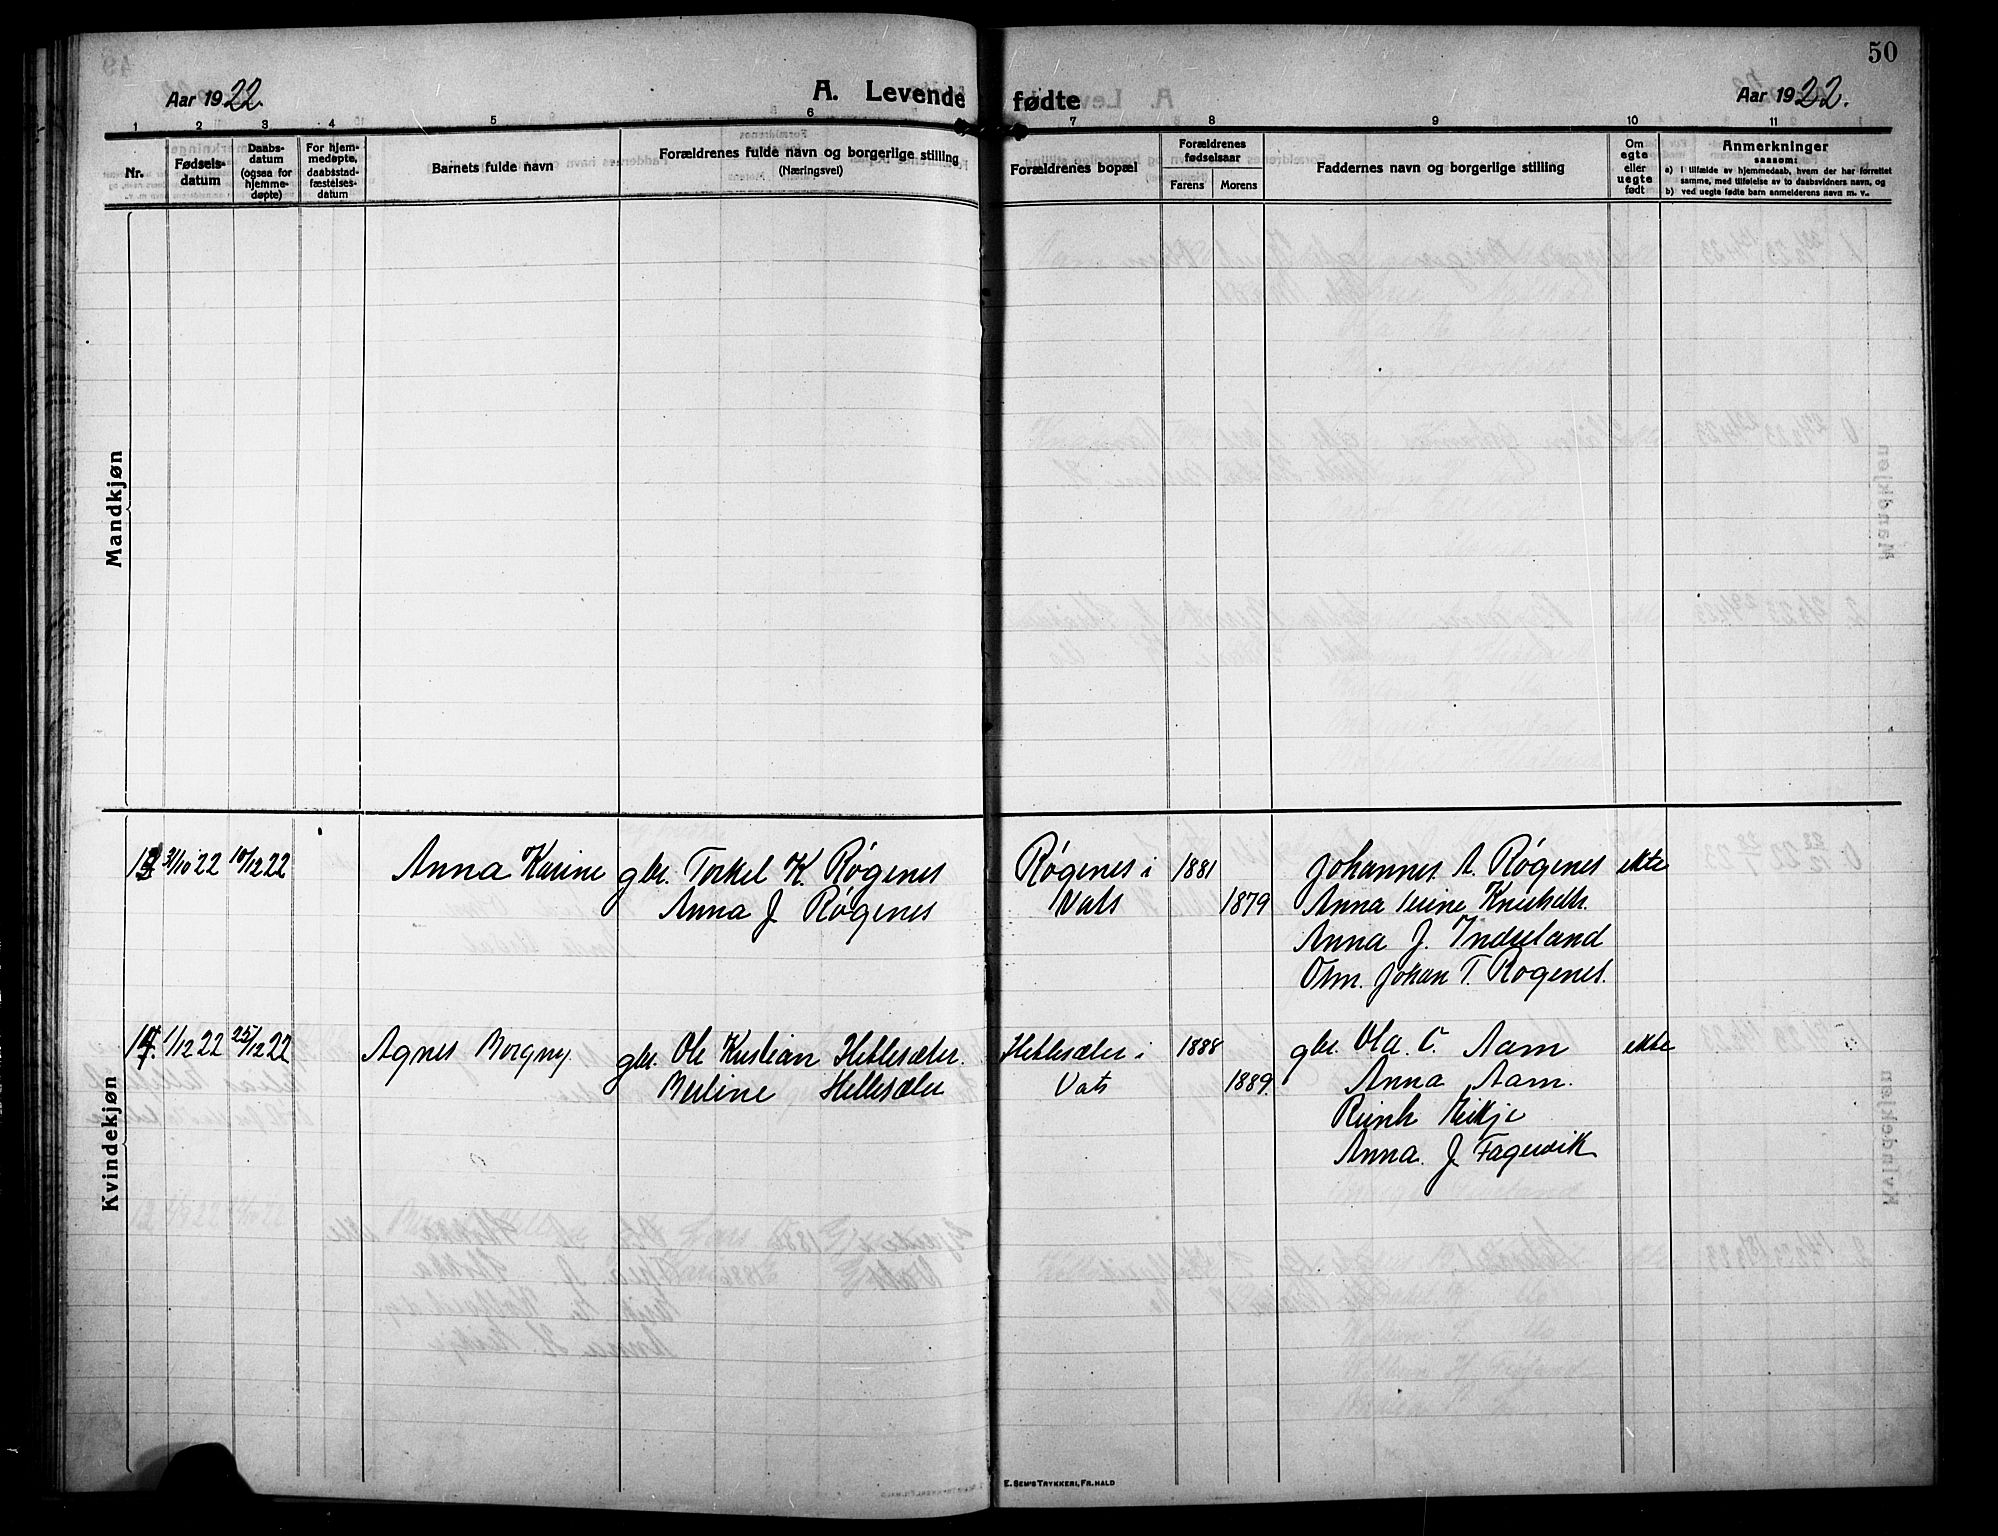 50
Aar 1922.
A. Levende fødte
Aar 1922.
1 2 3 4 5 6 7 8 9 10 11
Nr.
Fødsels-
datum
Daabs-
datum
(ogsaa for
hjemme-
døpte)
For hjem-
medøpte,
daabsstad-
fæstelses-
datum
Barnets fulde navn
Forældrenes fulde navn og borgerlige stilling
(Næringsvei)
Forældrenes bopæl
Forældrenes
fødselsaar
Farens Morens
Faddernes navn og borgerlige stilling
Om
egte
eller
uegte
født
Anmerkninger
saasom:
a) i tilfælde av hjemmedaab, hvem der har forrettet
samme, med tilføielse av to daabsvidners navn, og
b) ved uegte fødte barn anmelderens navn m. v..
Mandkjøn
Kvindekjøn
13 31/10 22 10/12 22 Anna Karine gbr. Torkel K. Røgenes Røgenes i 1881 Johannes A. Røgenes ekte
Anna J Røgenes Vats 1879 Anna
Anna J. Indreland
Osm. Johan T. Rogenes.
14 1/12 22 25/12 22 Agnes Borgny. gbr. Ole Kristian Hellesæter. Hellesæter i 1888 gbr. Ola. C. Aam ekte
Berline Hellesæter Vats 1889. Anna Aam.
Anna. J. Fagervik
E. Sem's Trykkeri, Fr.hald